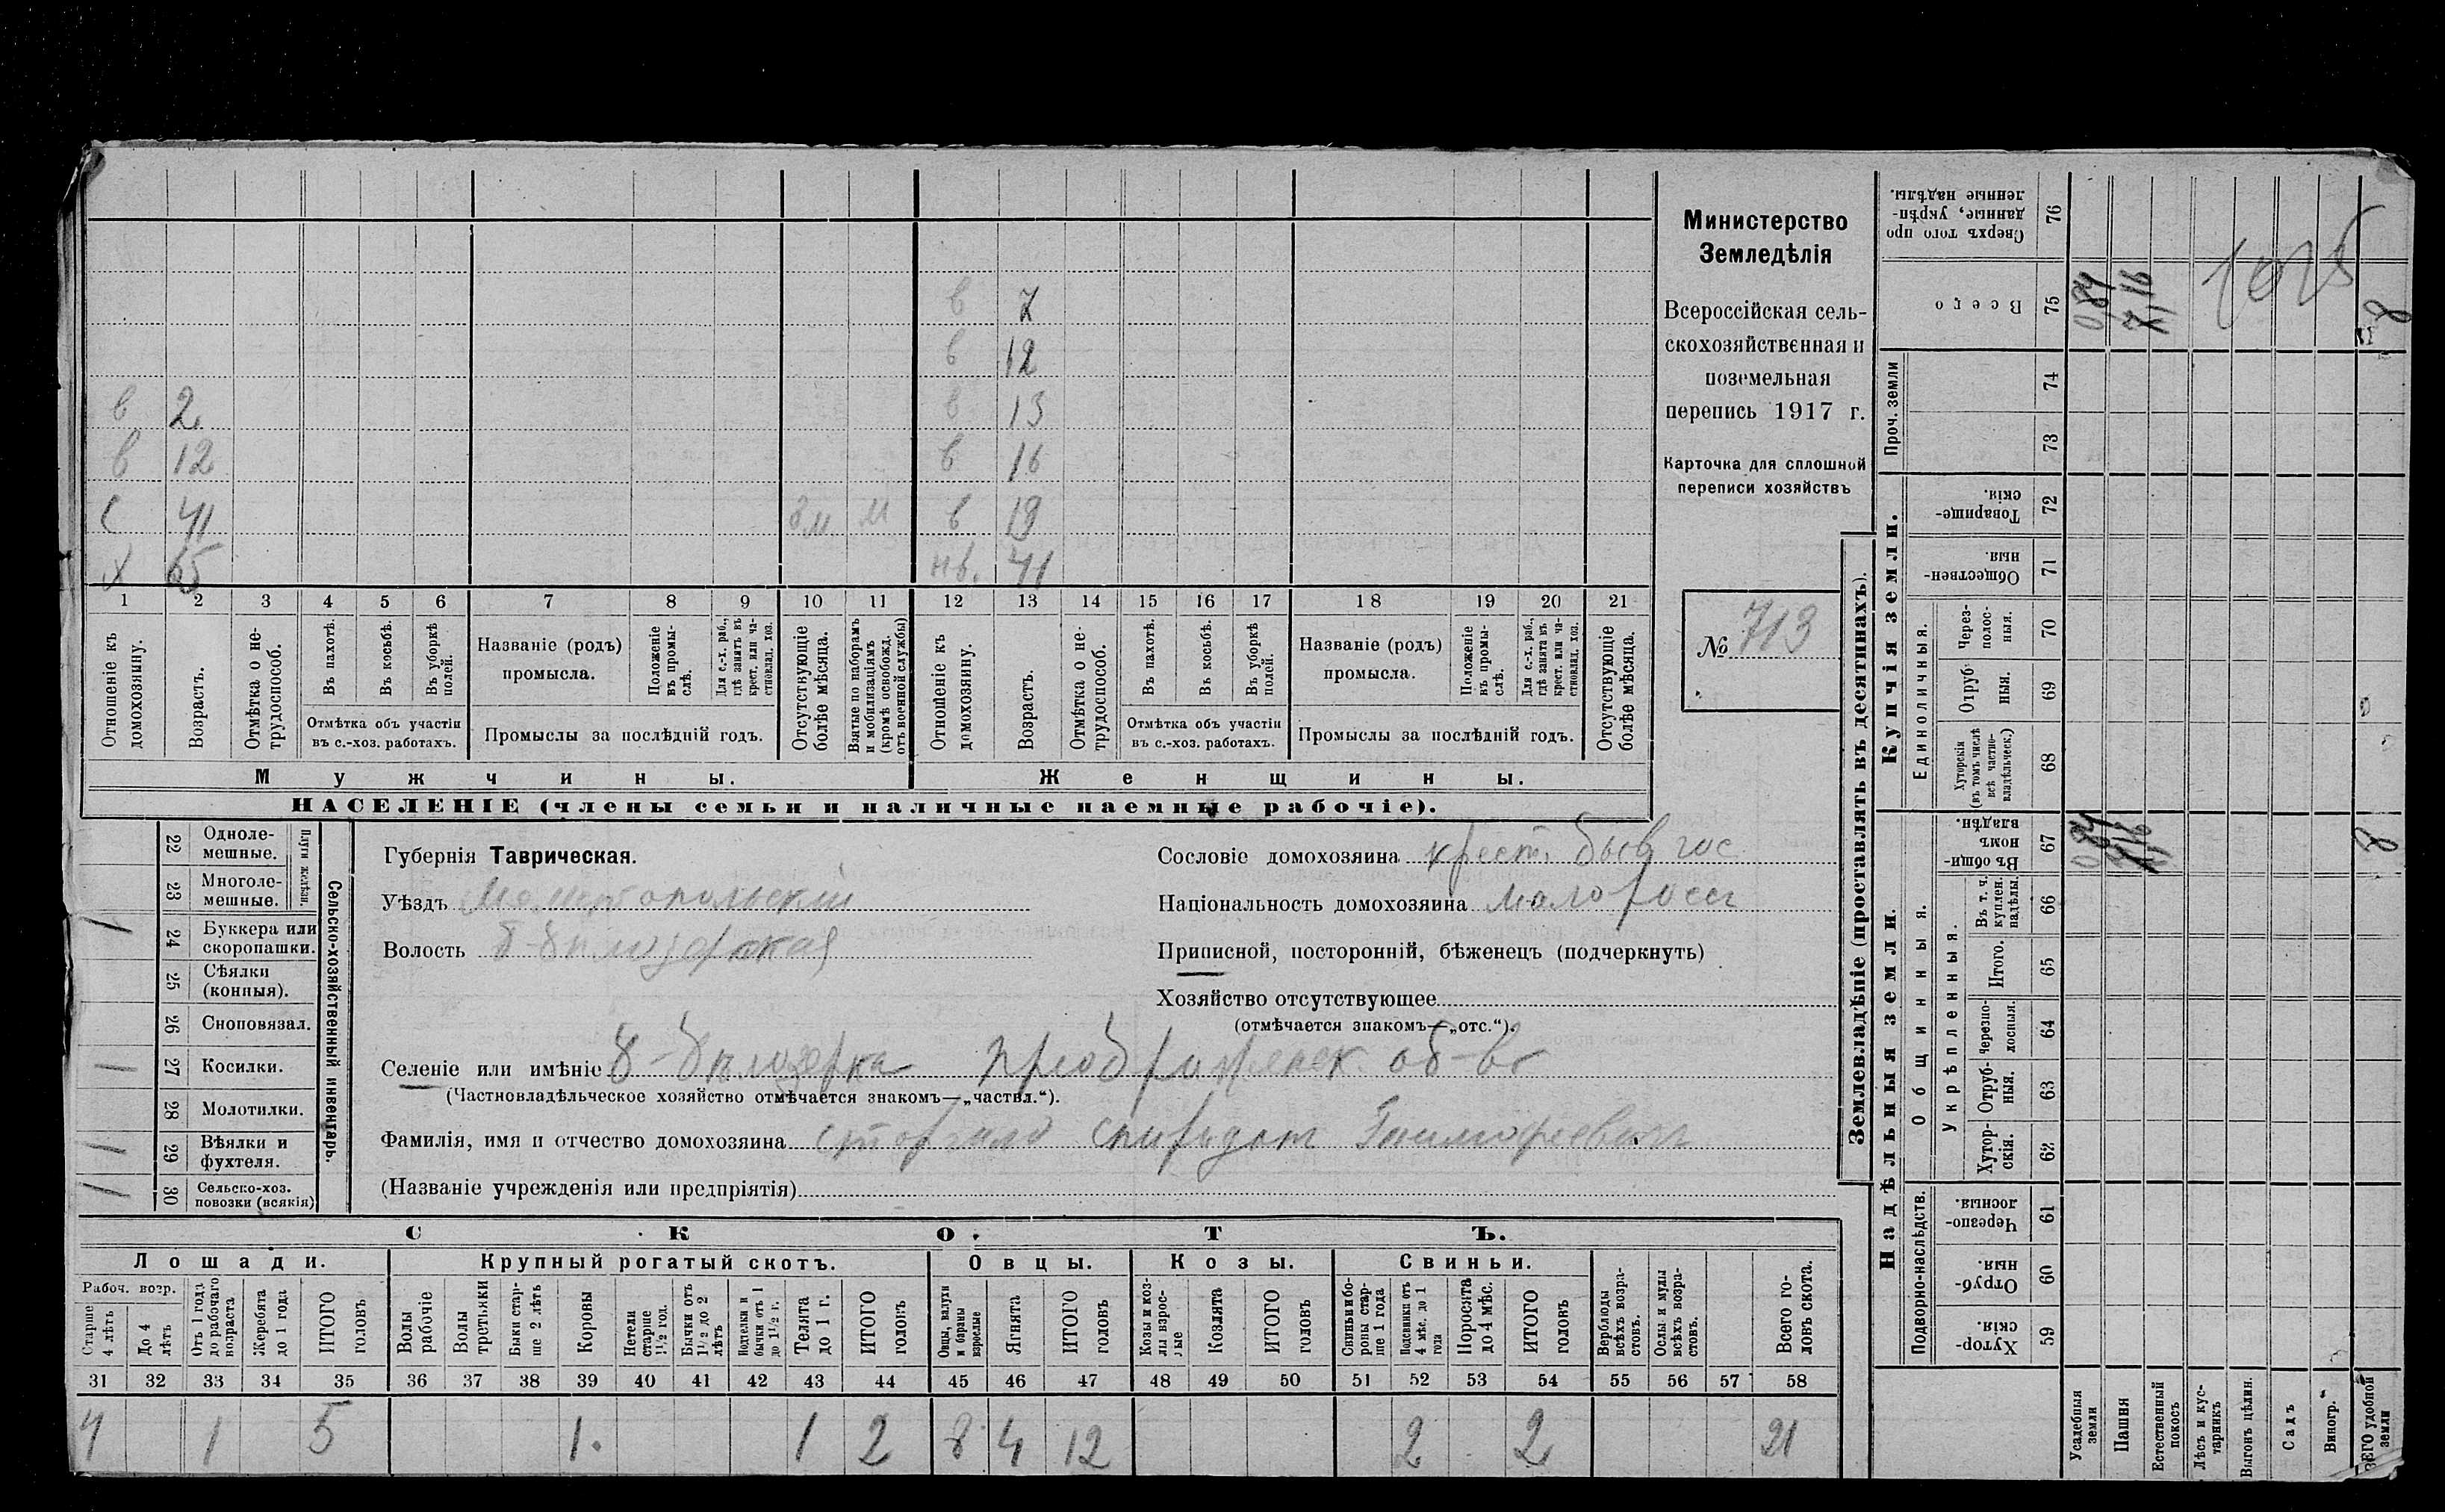 в 7
в 12
в 2 в 13
в 12 в 16
с 41 8 м. м в 19
х 65 нв. 41
1 2 3 4 5 6 7 8 9 10 11 12 13 14 15 16 17 18 19 20 21
Отношеніе къ домохозяину.
Возрастъ.
Отмѣтка о нетрудоспособ.
Въ пахотѣ.
Въ косьбѣ.
Въ уборкѣ полей.
Отмѣтка объ участіи
въ с.-хоз. работахъ.
Названіе (родъ)
промысла.
Положеніе въ промыслѣ.
Для с.-х. раб., гдѣ занятъ въ крест. или частновлад. хоз.
Промыслы за послѣдній годъ.
Отсутствующіе болѣе мѣсяца.
Взятые по наборамъ и мобилизаціямъ (кромѣ освобожд. отъ военной службы)
Отношеніе къ домохозяину.
Возрастъ.
Отмѣтка о нетрудоспособ.
Въ пахотѣ.
Въ косьбѣ.
Въ уборкѣ полей.
Отмѣтка объ участіи
въ с.-хоз. работахъ.
Названіе (родъ)
промысла.
Положеніе въ промыслѣ.
Для с.-х. раб., гдѣ занята въ крест. или частновлад. хоз.
Промыслы за послѣдній годъ.
Отсутствующіе болѣе мѣсяца.
Мужчины. Женщины.
НАСЕЛЕНІЕ (члены семьи и наличные наемные рабочіе).
Министерство
Земледѣлія
Всероссійская сель-
скохозяйственная и
поземельная
перепись 1917 г.
Карточка для сплошной
переписи хозяйствъ
№ 713
22 Одноле-
мешные.
23 Многоле-
мешные.
Плуги желѣзн.
1 24 Буккера или
скоропашки.
25 Сѣялки
(конныя).
26 Сноповязал.
1 27 Косилки.
28 Молотилки.
1 29 Вѣялки и
фухтеля.
1 30 Сельско-хоз.
повозки (всякія)
Сельско-хозяйственный инвентарь.
Губернія Таврическая.
Уѣздъ Мелитопольскій
Волость Б-Бѣлозерская
Сословіе домохозяина крест. быв гос
Національность домохозяина малоросс
Приписной, посторонній, бѣженецъ (подчеркнуть)
Хозяйство отсутствующее
(отмѣчается знакомъ—„отс.“).
Селеніе или имѣніе Б-Бѣлозерка преображенск. об-во
(Частновладѣльческое хозяйство отмѣчается знакомъ—„частвл.“).
Фамилія, имя и отчество домохозяина Спиридон Тимофеевич
(Названіе учрежденія или предпріятія)
СКОТЪ.
Лошади. Крупный рогатый скотъ. Овцы. Козы. Свиньи.
Рабоч. возр.
Старше 4 лѣтъ
До 4 лѣтъ
Отъ 1 года до рабочаго возраста
Жеребята до 1 года
ИТОГО головъ
Волы рабочіе
Волы третьяки
Быки старше 2 лѣтъ
Коровы
Нетели старше 1½ год.
Бычки отъ 1½ до 2 лѣтъ
Подтелки и бычки отъ 1 до 1½ г.
Телята до 1 г.
ИТОГО головъ
Овцы, валухи и бараны взрослые
Ягнята
ИТОГО головъ
Козы козлы взрослые
Козлята
ИТОГО головъ
Свиньи боровы старше 1 года
Подсвинки отъ 4 мѣс. до 1 года
Поросята до 4 мѣс.
ИТОГО головъ
Верблюды всѣхъ возрастовъ.
Ослы и мулы всѣхъ возрастовъ.
Всего головъ скота.
31 32 33 34 35 36 37 38 39 40 41 42 43 44 45 46 47 48 49 50 51 52 53 54 55 56 57 58
4 1 5 1. 1 2 8 4 12 2 2 21
Землевладѣніе (проставлять въ десятинахъ).
Сверхъ того проданные, укрѣпленные надѣлы. 76
Всего 75 0,84 7,16 8
1025
Проч. земли
74
73
Купчія земли.
Товарищескія. 72
Общественныя. 71
Единоличныя.
Черезполосныя. 70
Отрубныя. 69
Хуторскія (въ томъ числѣ всѣ частновладѣльческ.) 68
Надѣльныя земли.
Общинныя.
Въ общинномъ владѣн. 67 0,84 7,16 8
Укрѣпленныя.
Въ т. ч. куплен. надѣлы. 66
Итого. 65
Черезполосныя. 64
Отрубныя. 63
Хуторскія. 62
Подворно-наслѣдств.
Черезполосныя. 61
Отрубныя. 60
Хуторскія. 59
Усадебныя земли
Пашня
Естественный покосъ
Лѣсъ и кустарникъ
Выгонъ цѣлин.
Садъ
Виногр.
ВСЕГО удобной земли